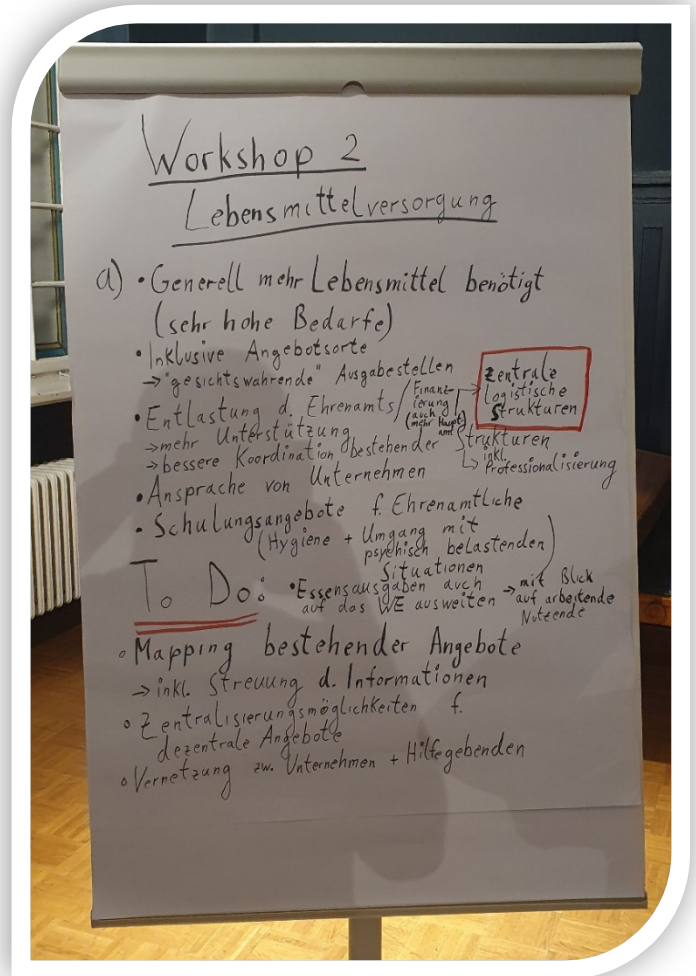 Workshop 2
Lebensmittelversorgung
a) • Generell mehr Lebensmittel benötigt
(sehr hohe Bedarfe)
• Inklusive Angebotsorte
→ "gesichtswahrende" Ausgabestellen
• Entlastung d. Ehrenamts / Finanz-
ierung
(auch
mehr Haupt-
amt)
→ Zentrale
logistische
Strukturen
→ mehr Unterstützung
→ bessere Koordination bestehender Strukturen
↳ inkl.
Professionalisierung
• Ansprache von Unternehmen
• Schulungsangebote f. Ehrenamtliche
(Hygiene + Umgang mit
psychisch belastenden
Situationen)
• Essensausgaben auch
auf das WE ausweiten → mit Blick
auf arbeitende
Nutzende
To Do:
◦ Mapping bestehender Angebote
→ inkl. Streuung d. Informationen
◦ Zentralisierungsmöglichkeiten f.
dezentrale Angebote
◦ Vernetzung zw. Unternehmen + Hilfegebenden